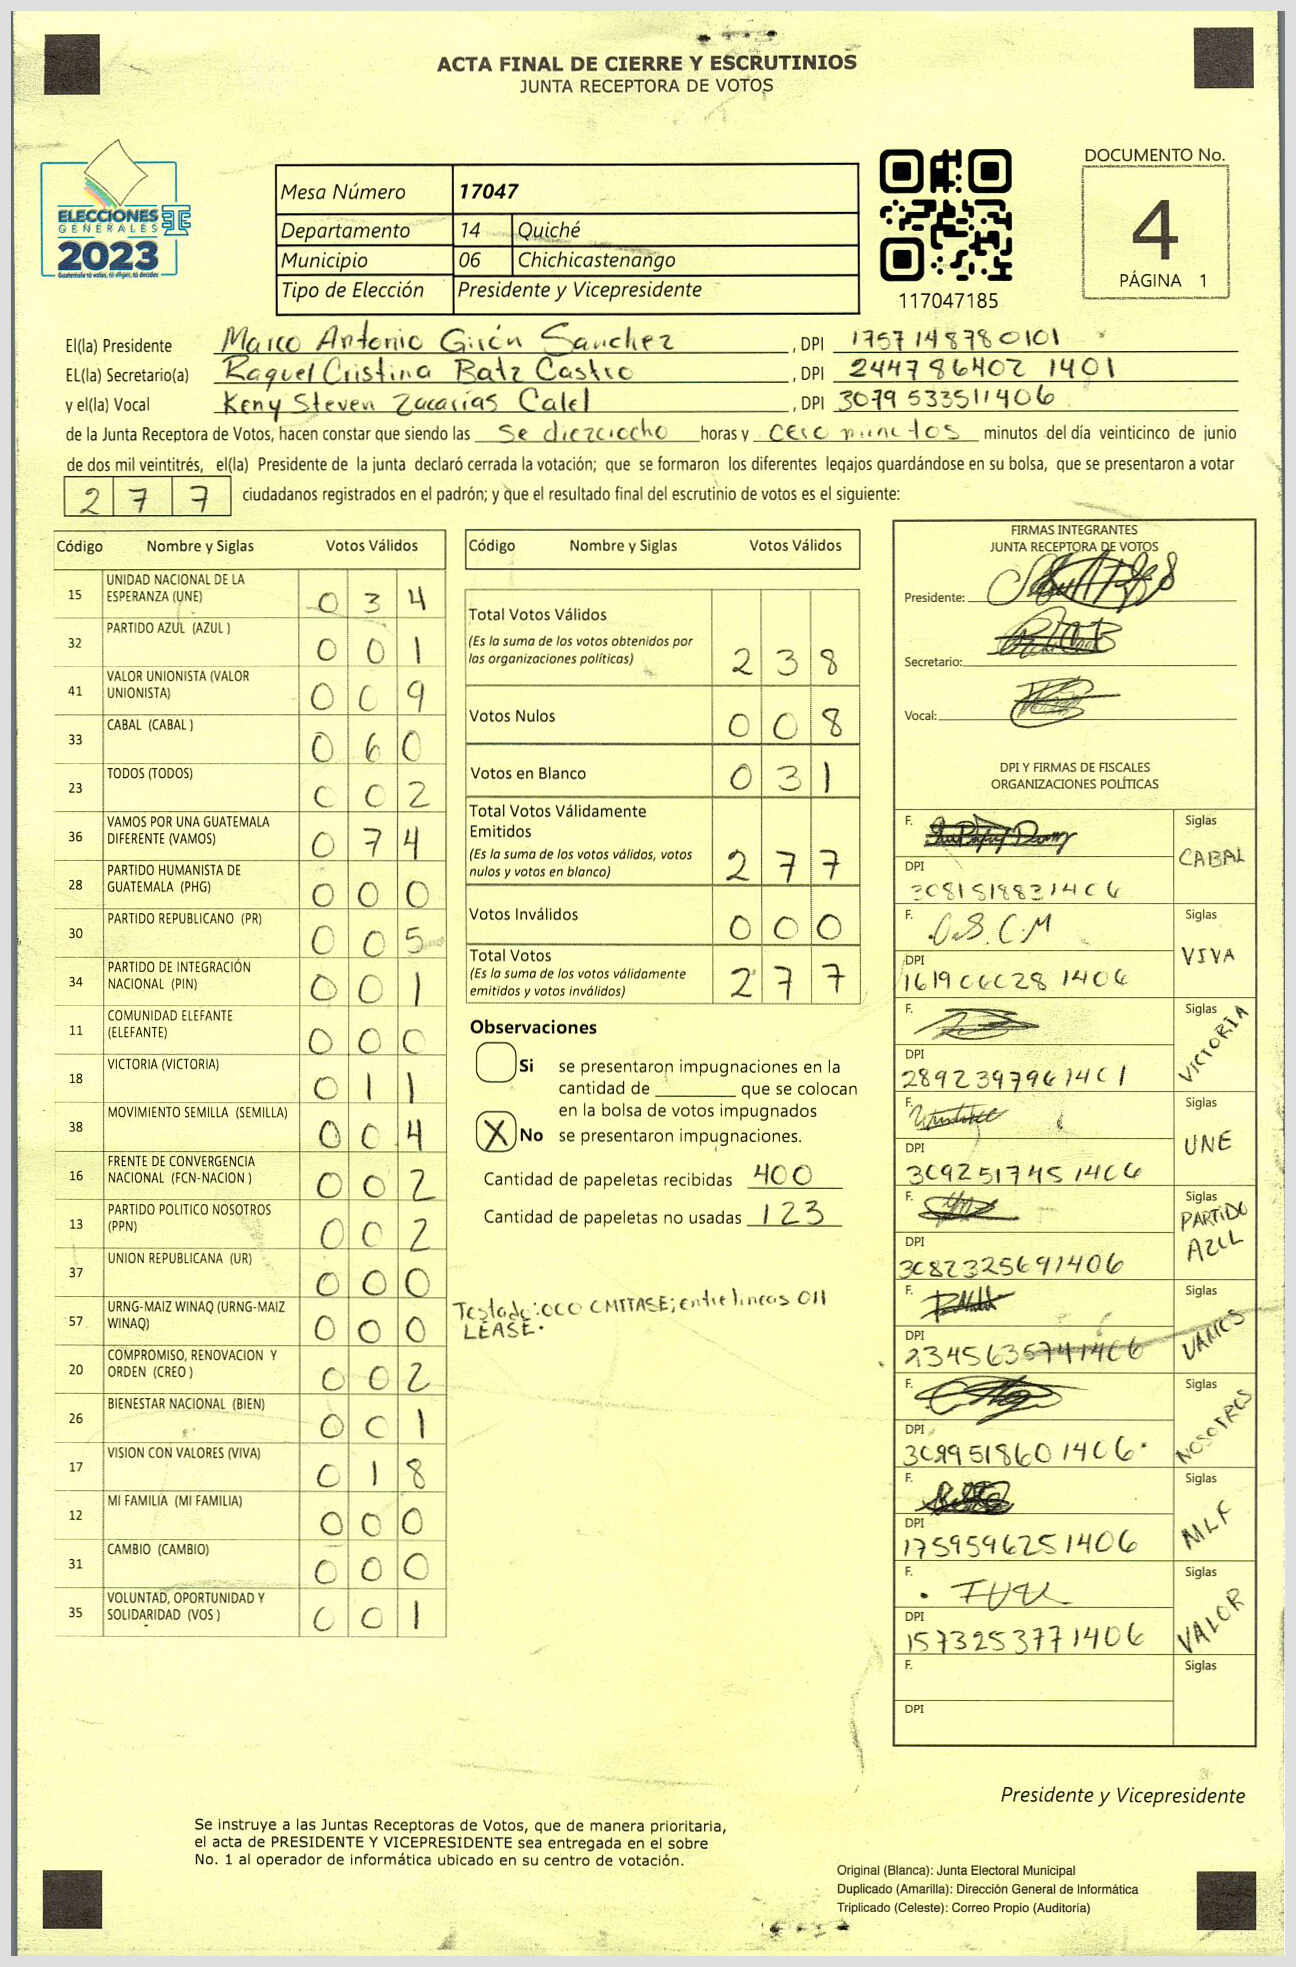 ACTA FINAL DE CIERRE Y ESCRUTINIOS
JUNTA RECEPTORA DE VOTOS
ELECCIONES
GENERALES
2023
Mesa Número 17047
Departamento 14 Quiché
Municipio 06 Chichicastenango
Tipo de Elección Presidente y Vicepresidente
117047185
DOCUMENTO No.
4
PÁGINA 1
El(la) Presidente Marco Antonio Girón Sanchez, DPI 1757148780101
EL(la) Secretario(a) Raquel Cristina Batz Castro, DPI 244786402 1401
y el(la) Vocal Keny Steven Zacarias Calel, DPI 3079533511406
de la Junta Receptora de Votos, hacen constar que siendo las se dieziocho horas y cero minutos minutos del día veinticinco de junio
de dos mil veintitrés, el(la) Presidente de la junta declaró cerrada la votación; que se formaron los diferentes legajos guardándose en su bolsa, que se presentaron a votar
2 7 7 ciudadanos registrados en el padrón; y que el resultado final del escrutinio de votos es el siguiente:
Código Nombre y Siglas Votos Válidos
15 UNIDAD NACIONAL DE LA
ESPERANZA (UNE) 0 3 4
32 PARTIDO AZUL (AZUL ) 0 0 1
41 VALOR UNIONISTA (VALOR
UNIONISTA) 0 0 9
33 CABAL (CABAL ) 0 6 0
23 TODOS (TODOS) 0 0 2
36 VAMOS POR UNA GUATEMALA
DIFERENTE (VAMOS) 0 7 4
28 PARTIDO HUMANISTA DE
GUATEMALA (PHG) 0 0 0
30 PARTIDO REPUBLICANO (PR) 0 0 5
34 PARTIDO DE INTEGRACIÓN
NACIONAL (PIN) 0 0 1
11 COMUNIDAD ELEFANTE
(ELEFANTE) 0 0 0
18 VICTORIA (VICTORIA) 0 1 1
38 MOVIMIENTO SEMILLA (SEMILLA) 0 0 4
16 FRENTE DE CONVERGENCIA
NACIONAL (FCN-NACION ) 0 0 2
13 PARTIDO POLITICO NOSOTROS
(PPN) 0 0 2
37 UNION REPUBLICANA (UR) 0 0 0
57 URNG-MAIZ WINAQ (URNG-MAIZ
WINAQ) 0 0 0
20 COMPROMISO, RENOVACION Y
ORDEN (CREO ) 0 0 2
26 BIENESTAR NACIONAL (BIEN) 0 0 1
17 VISION CON VALORES (VIVA) 0 1 8
12 MI FAMILIA (MI FAMILIA) 0 0 0
31 CAMBIO (CAMBIO) 0 0 0
35 VOLUNTAD, OPORTUNIDAD Y
SOLIDARIDAD (VOS ) 0 0 1
Código Nombre y Siglas Votos Válidos
Total Votos Válidos
(Es la suma de los votos obtenidos por
las organizaciones políticas) 2 3 8
Votos Nulos 0 0 8
Votos en Blanco 0 3 1
Total Votos Válidamente
Emitidos
(Es la suma de los votos válidos, votos
nulos y votos en blanco) 2 7 7
Votos Inválidos 0 0 0
Total Votos
(Es la suma de los votos válidamente
emitidos y votos inválidos) 2 7 7
Observaciones
Si se presentaron impugnaciones en la
cantidad de ________ que se colocan
en la bolsa de votos impugnados
X No se presentaron impugnaciones.
Cantidad de papeletas recibidas 400
Cantidad de papeletas no usadas 123
Testado: 000 OMITASE; entre lineas 011
LEASE.
FIRMAS INTEGRANTES
JUNTA RECEPTORA DE VOTOS
Presidente:
Secretario:
Vocal:
DPI Y FIRMAS DE FISCALES
ORGANIZACIONES POLÍTICAS
F. Siglas
CABAL
DPI
3081518831406
F. O.S.C.M Siglas
VIVA
DPI
161906028 1406
F. Siglas
VICTORIA
DPI
2892397961401
F. Siglas
UNE
DPI
3092517451406
F. Siglas
PARTIDO
AZUL
DPI
3082325691406
F. Siglas
VAMOS
DPI
2345635741406
F. Siglas
NOSOTROS
DPI
3099518601406.
F. Siglas
MLF
DPI
1759596251406
F. Siglas
VALOR
DPI
1573253771406
F. Siglas
DPI
Presidente y Vicepresidente
Se instruye a las Juntas Receptoras de Votos, que de manera prioritaria,
el acta de PRESIDENTE Y VICEPRESIDENTE sea entregada en el sobre
No. 1 al operador de informática ubicado en su centro de votación.
Original (Blanca): Junta Electoral Municipal
Duplicado (Amarilla): Dirección General de Informática
Triplicado (Celeste): Correo Propio (Auditoria)